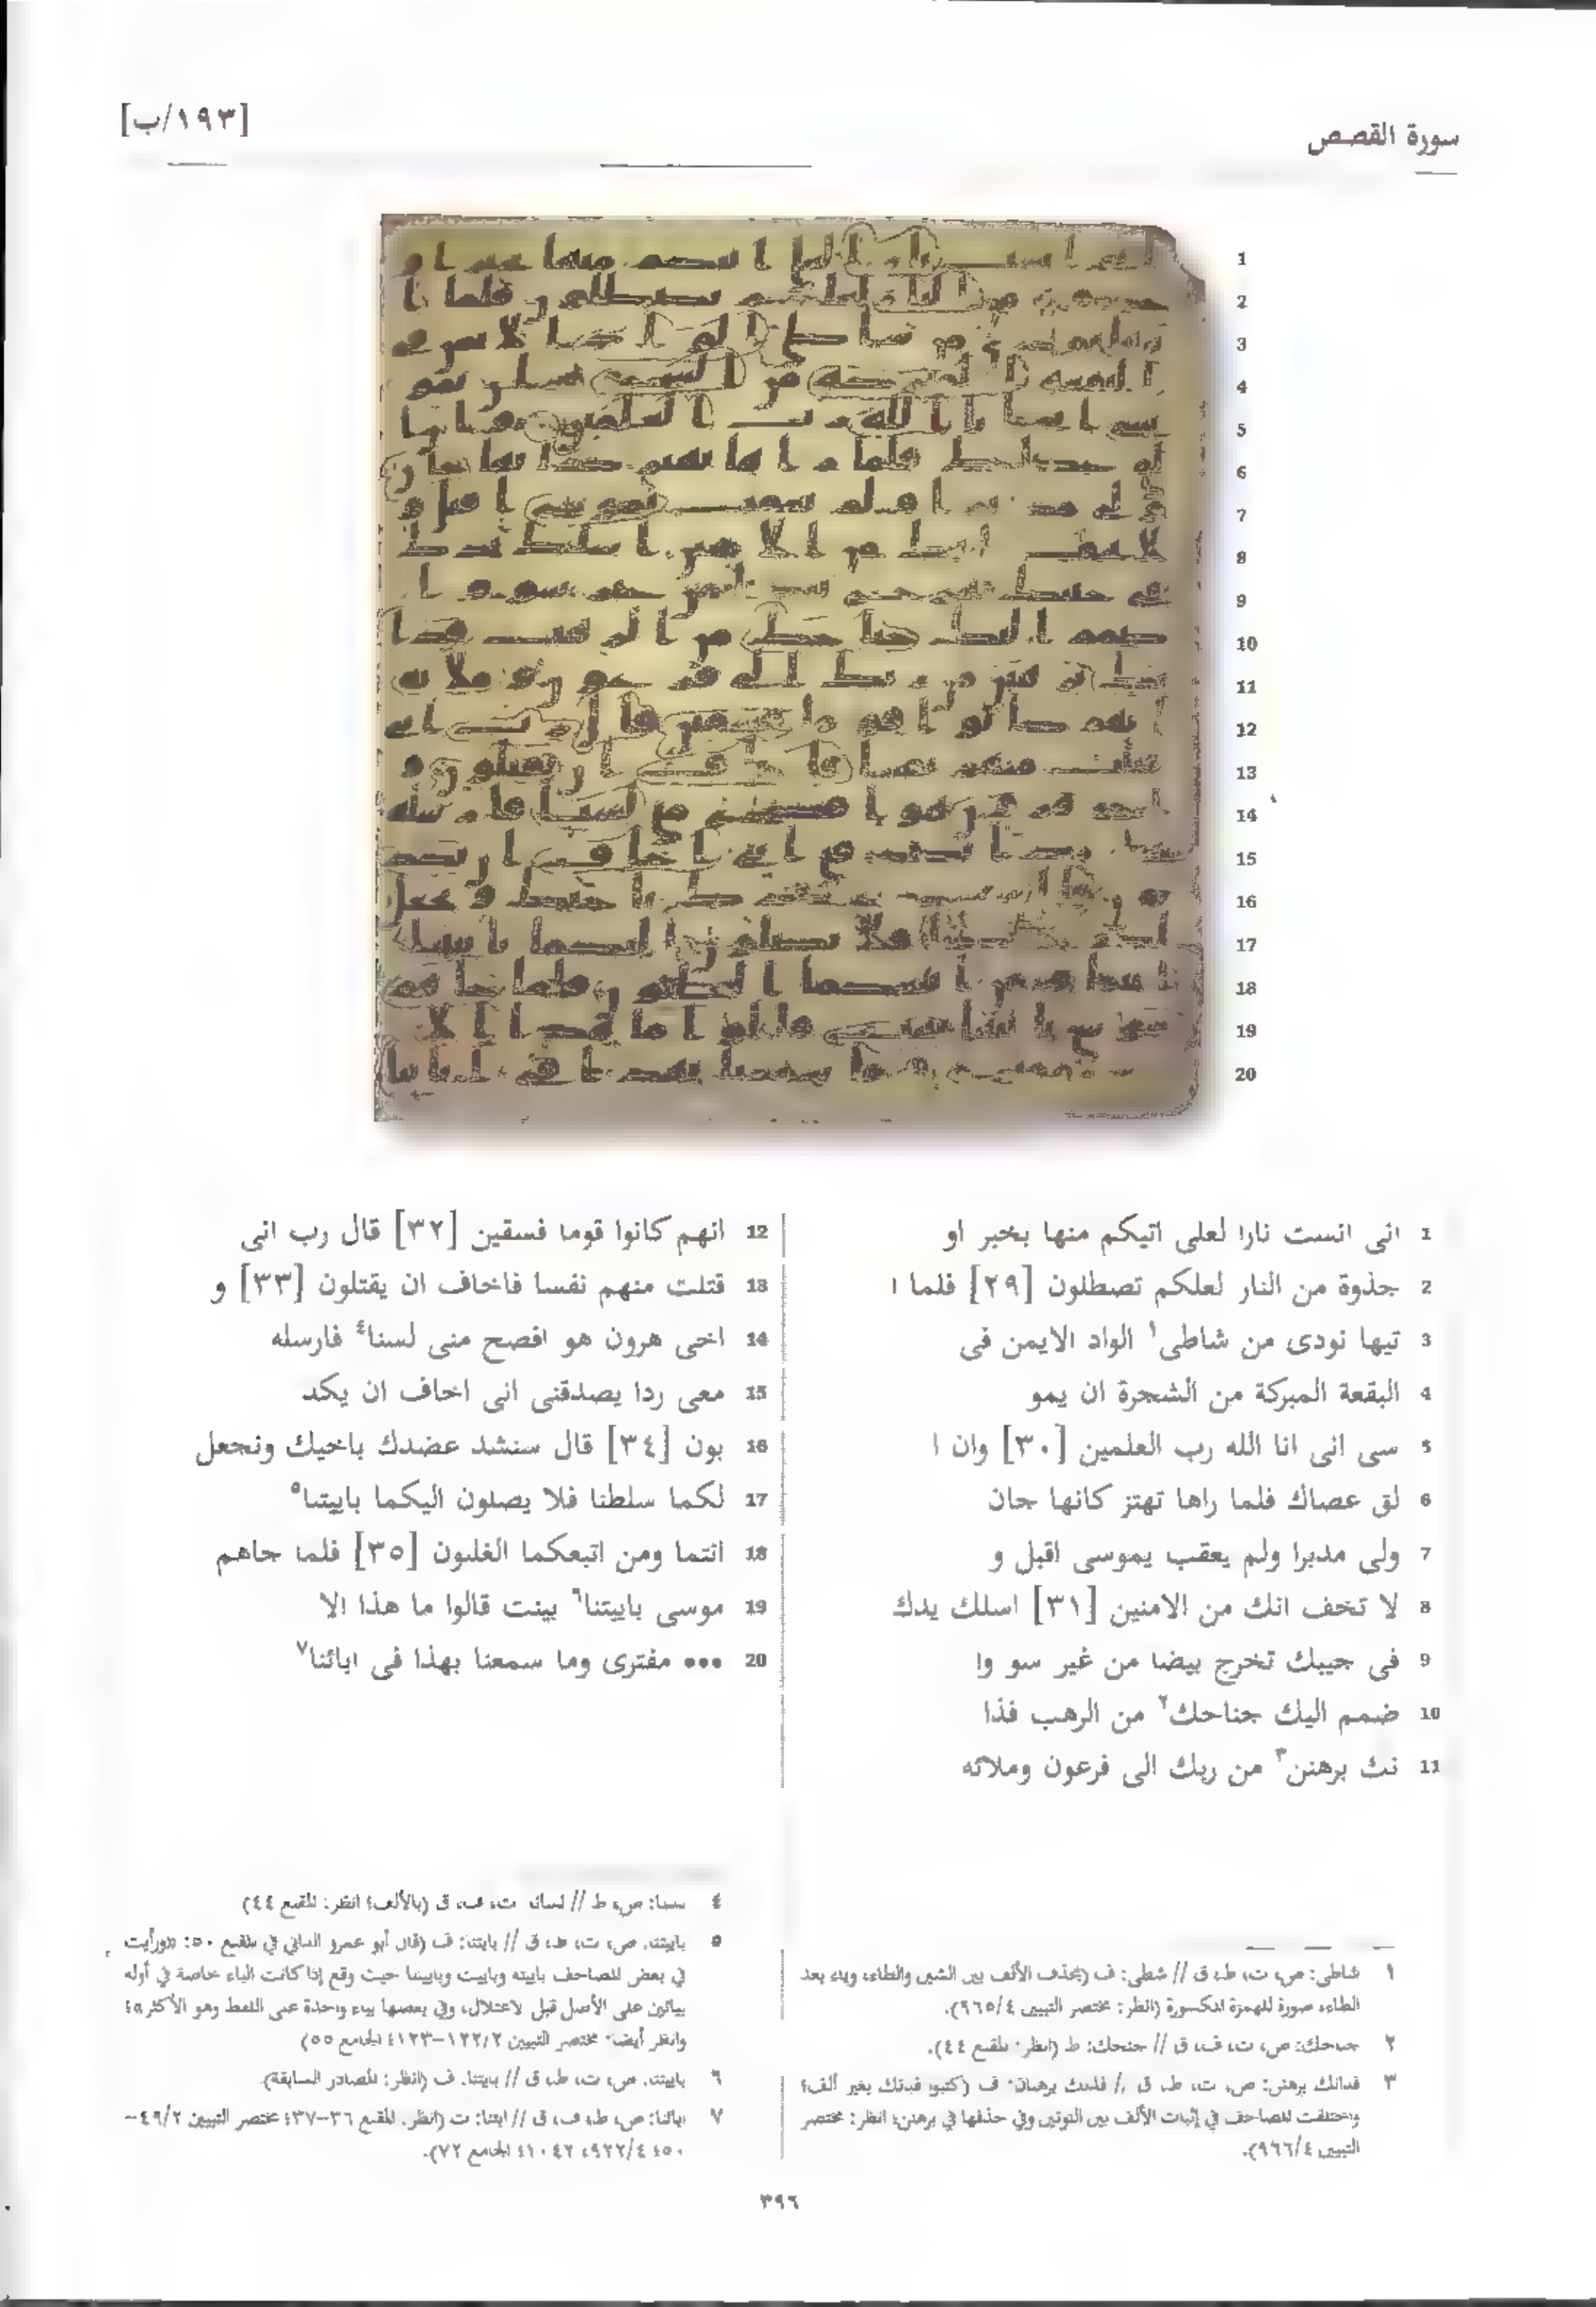 سورة القصص
[١٩٣/ب]
1 انى انست نارا لعلى اتيكم منها بخبر او
2 جذوة من النار لعلكم تصطلون [٢٩] فلما ا
3 تيها نودى من شاطى١ الواد الايمن فى
4 البقعة المبركة من الشجرة ان يمو
5 سى انى انا الله رب العلمين [٣٠] وان ا
6 لق عصاك فلما راها تهتز كانها جان
7 ولى مدبرا ولم يعقب يموسى اقبل و
8 لا تخف انك من الامنين [٣١] اسلك يدك
9 فى جيبك تخرج بيضا من غير سو وا
10 ضمم اليك جناحك٢ من الرهب فذا
11 نك برهنن٣ من ربك الى فرعون وملائه
12 انهم كانوا قوما فسقين [٣٢] قال رب انى
13 قتلت منهم نفسا فاخاف ان يقتلون [٣٣] و
14 اخى هرون هو افصح منى لسنا٤ فارسله
15 معى ردا يصدقنى انى اخاف ان يكذ
16 بون [٣٤] قال سنشد عضدك باخيك ونجعل
17 لكما سلطنا فلا يصلون اليكما باييتنا٥
18 انتما ومن اتبعكما الغلبون [٣٥] فلما جاهم
19 موسى باييتنا٦ بينت قالوا ما هذا الا
20 ••• مفترى وما سمعنا بهذا فى ابائنا٧
١ شاطى: ص، ت، ط، ق // شطى: ف (بحذف الألف بين الشين والطاء، وياء بعد
الطاء، صورة للهمزة المكسورة (انظر: مختصر التبيين ٩٦٥/٤).
٢ جناحك: ص، ت، ف، ق // جنحك: ط (انظر: المقنع ٤٤).
٣ فذانك برهنن: ص، ت، ط، ق // فذنك برهنان: ف (كتبوا فذنك بغير ألف؛
واختلفت المصاحف في إثبات الألف بين النونين وفي حذفها في برهنن؛ انظر: مختصر
التبيين ٩٦٦/٤).
٤ لسنا: ص، ط // لسانا: ت، ف، ق (بالألف؛ انظر: المقنع ٤٤)
٥ باييتنا: ص، ت، ط، ق // بايتنا: ف (قال أبو عمرو الداني في المقنع ٥٠: «ورأيت
في بعض المصاحف باييته وباييت وباييتنا حيث وقع إذا كانت الباء خاصة في أوله
بيائين على الأصل قبل الاعتلال، وفي بعضها بياء واحدة على اللفظ وهو الأكثر»؛
وانظر أيضا: مختصر التبيين ١٢٢/٢-١٢٣؛ الجامع ٥٥)
٦ باييتنا: ص، ت، ط، ق // بايتنا: ف (انظر: المصادر السابقة).
٧ ابائنا: ص، ط، ف، ق // ابئنا: ت (انظر: المقنع ٣٦-٣٧؛ مختصر التبيين ٤٩/٢-
٥٠؛ ٩٢٢/٤، ١٠٤٢؛ الجامع ٧٢).
٣٩٦